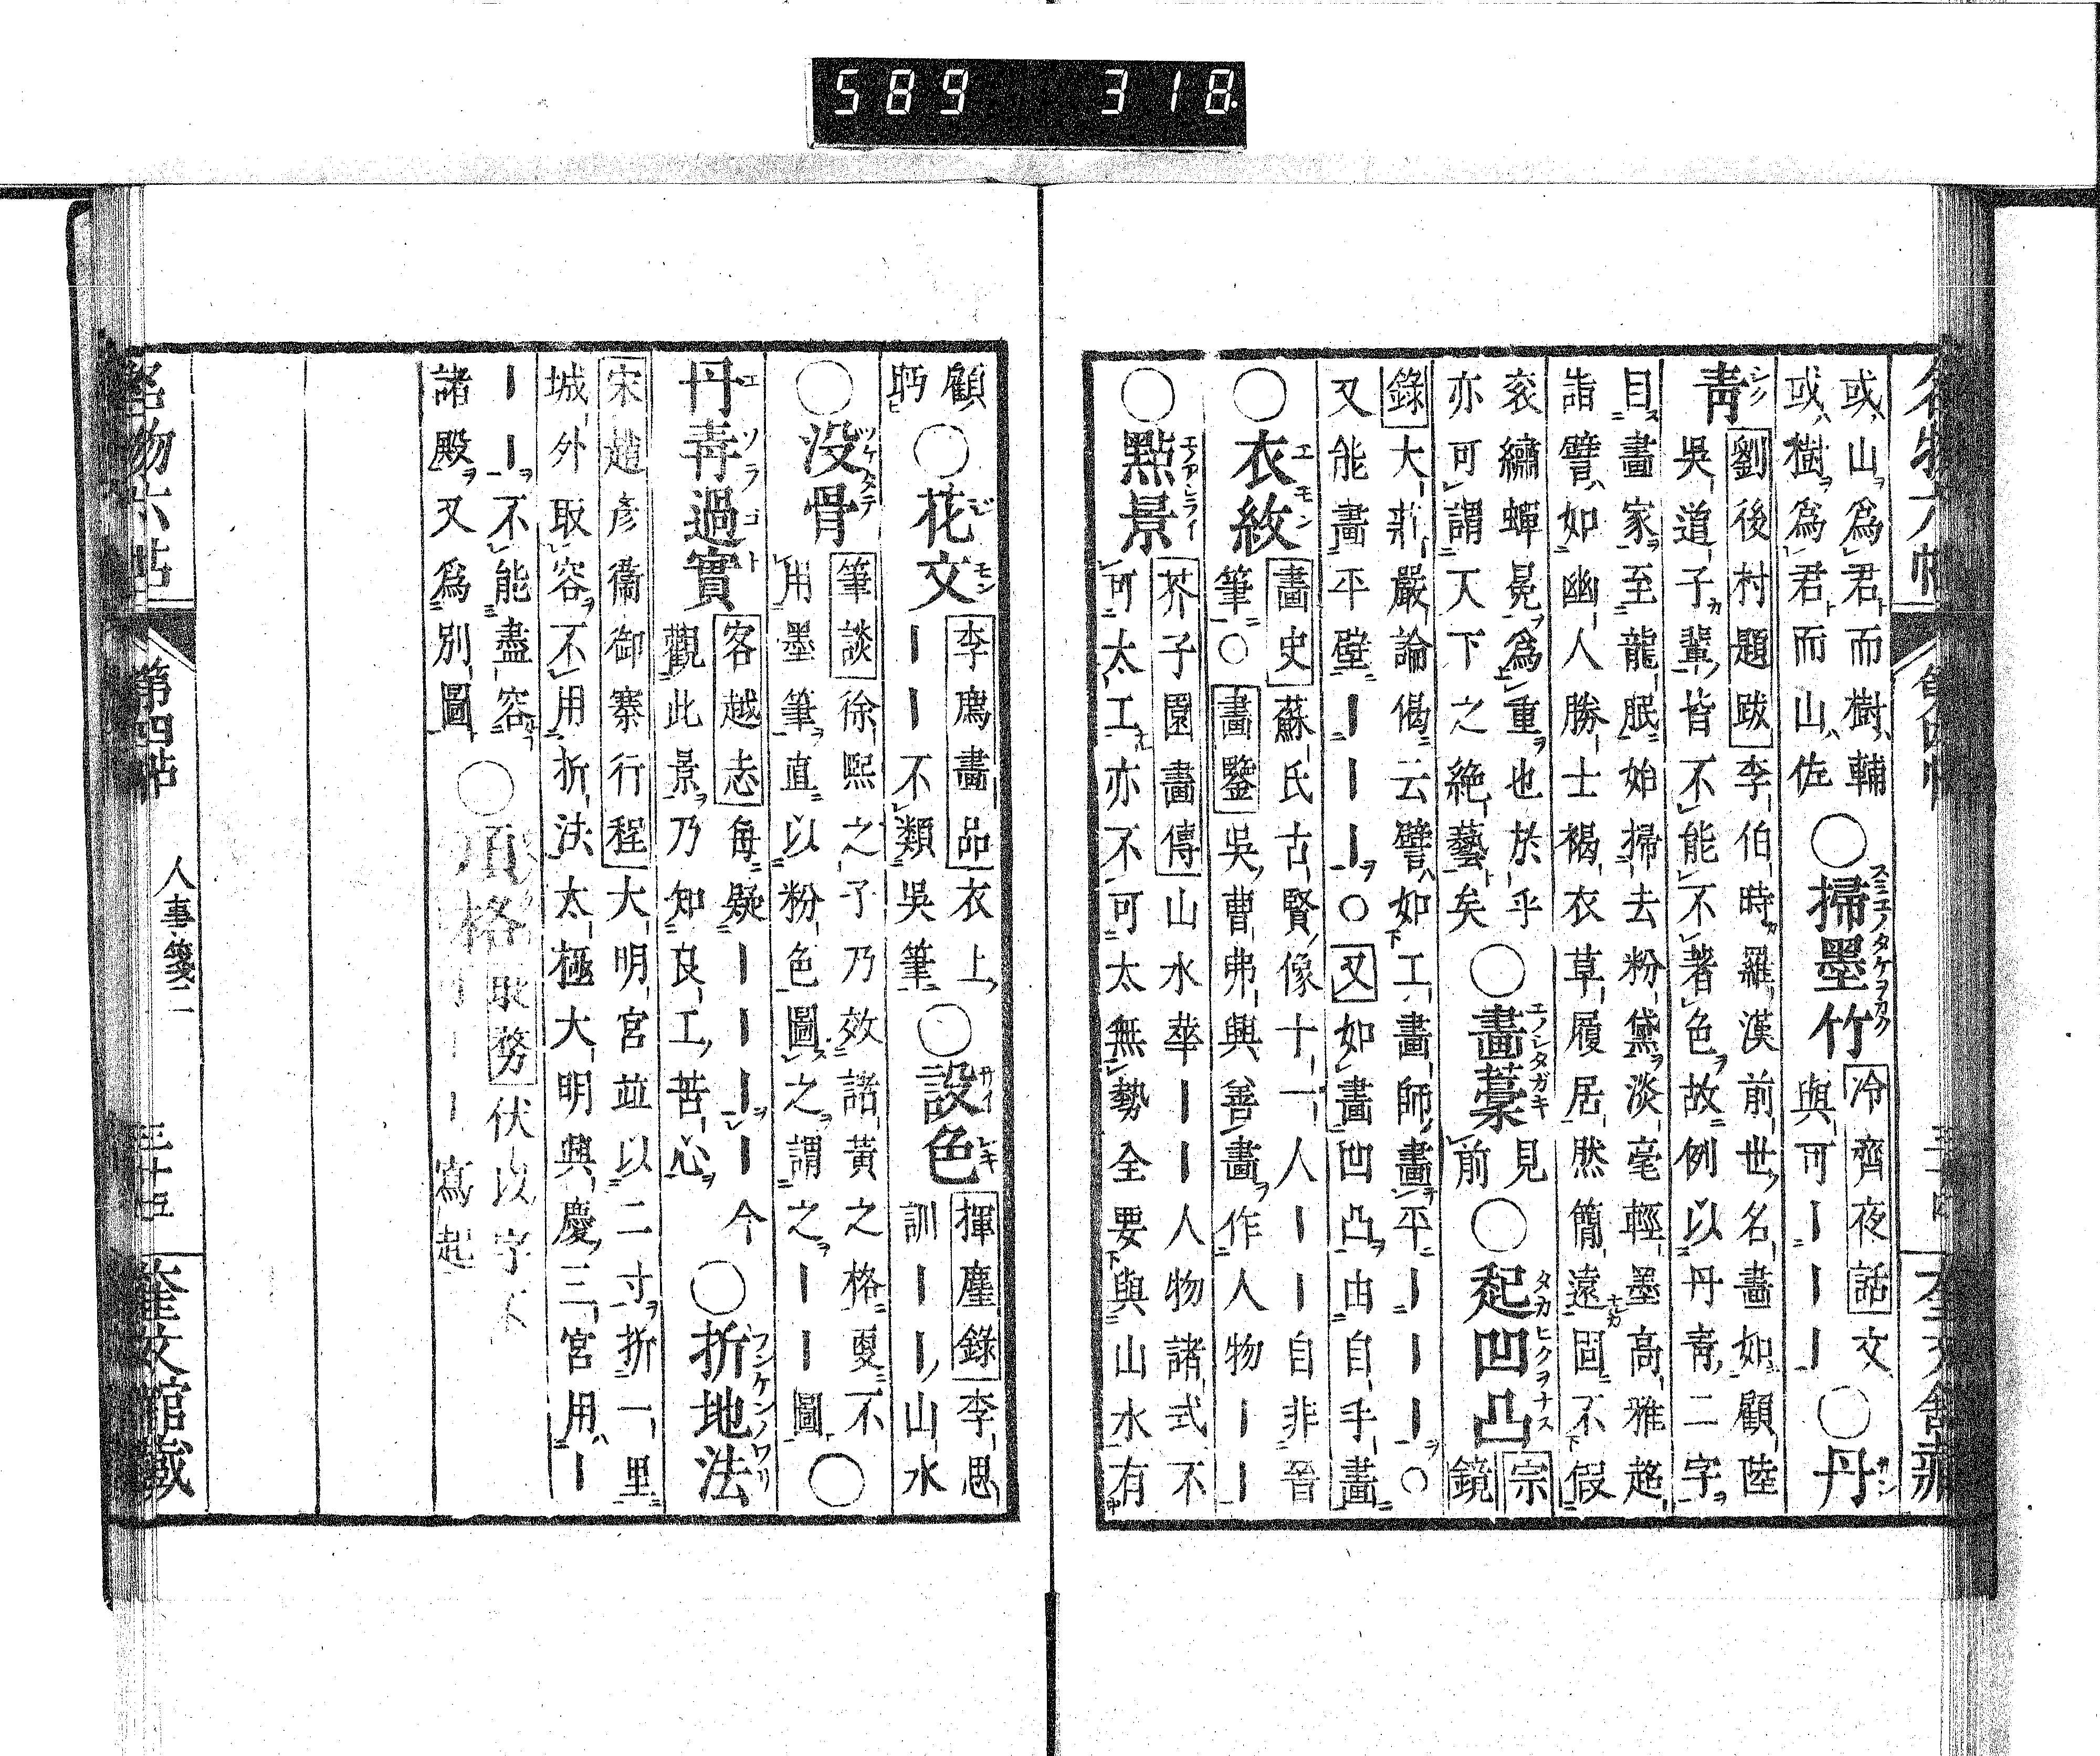 名物六帖 第四帖 三十四 奎文館藏
或山爲君而樹輔
或樹爲君而山佐
○掃墨竹
スミエノタケヲカク
冷齊夜話 文
與可｜｜｜
○丹
青
劉後村題跋 李伯時羅漢前世名畫如顧陸
吳道子輩皆不能不著色故例以丹青二字
目畫家至龍眠始掃去粉黛淡毫輕墨高雅超
詣譬如幽人勝士褐衣草履居然簡遠固不假
袞繡蟬冕爲重也於乎
亦可謂天下之絶藝矣
○畫藁
エノシタガキ
見
前
○起凹凸
タカヒクヲナス
宗
鏡
錄 大莊嚴論偈云譬如工畫師畫平｜｜｜○
又能畫平壁｜｜｜○又如畫凹凸由自手畫
○衣紋
エモン
畫史 蘇氏古賢像十一人｜｜自非晉
筆○畫鑒 吳曹弗興善畫作人物｜｜
○點景
芥子園畫傳 山水華｜｜人物諸式不
可太工亦不可太無勢全要與山水有
顧
眄
○花文
李廌畫品 衣上
｜｜不類吳筆
○設色
揮麈錄 李思
訓｜｜山水
○没骨
ツケタテ
筆談 徐熙之子乃效諸黃之格更不
用墨筆直以粉色圖之謂之｜｜圖
○
丹青過實
エソラゴト
客越志 每疑｜｜｜｜今
觀此景乃知良工苦心
○折地法
フンケンノワリ
宋趙彦衞御寨行程 大明宮並以二寸折一里
城外取容不用折法太極大明興慶三宮用｜
｜｜不能盡容
諸殿又爲別圖
○頂格
取務 伏以字不
｜｜寫起
名物六帖 第四帖 人事箋二 三十五 奎文館藏
589 318